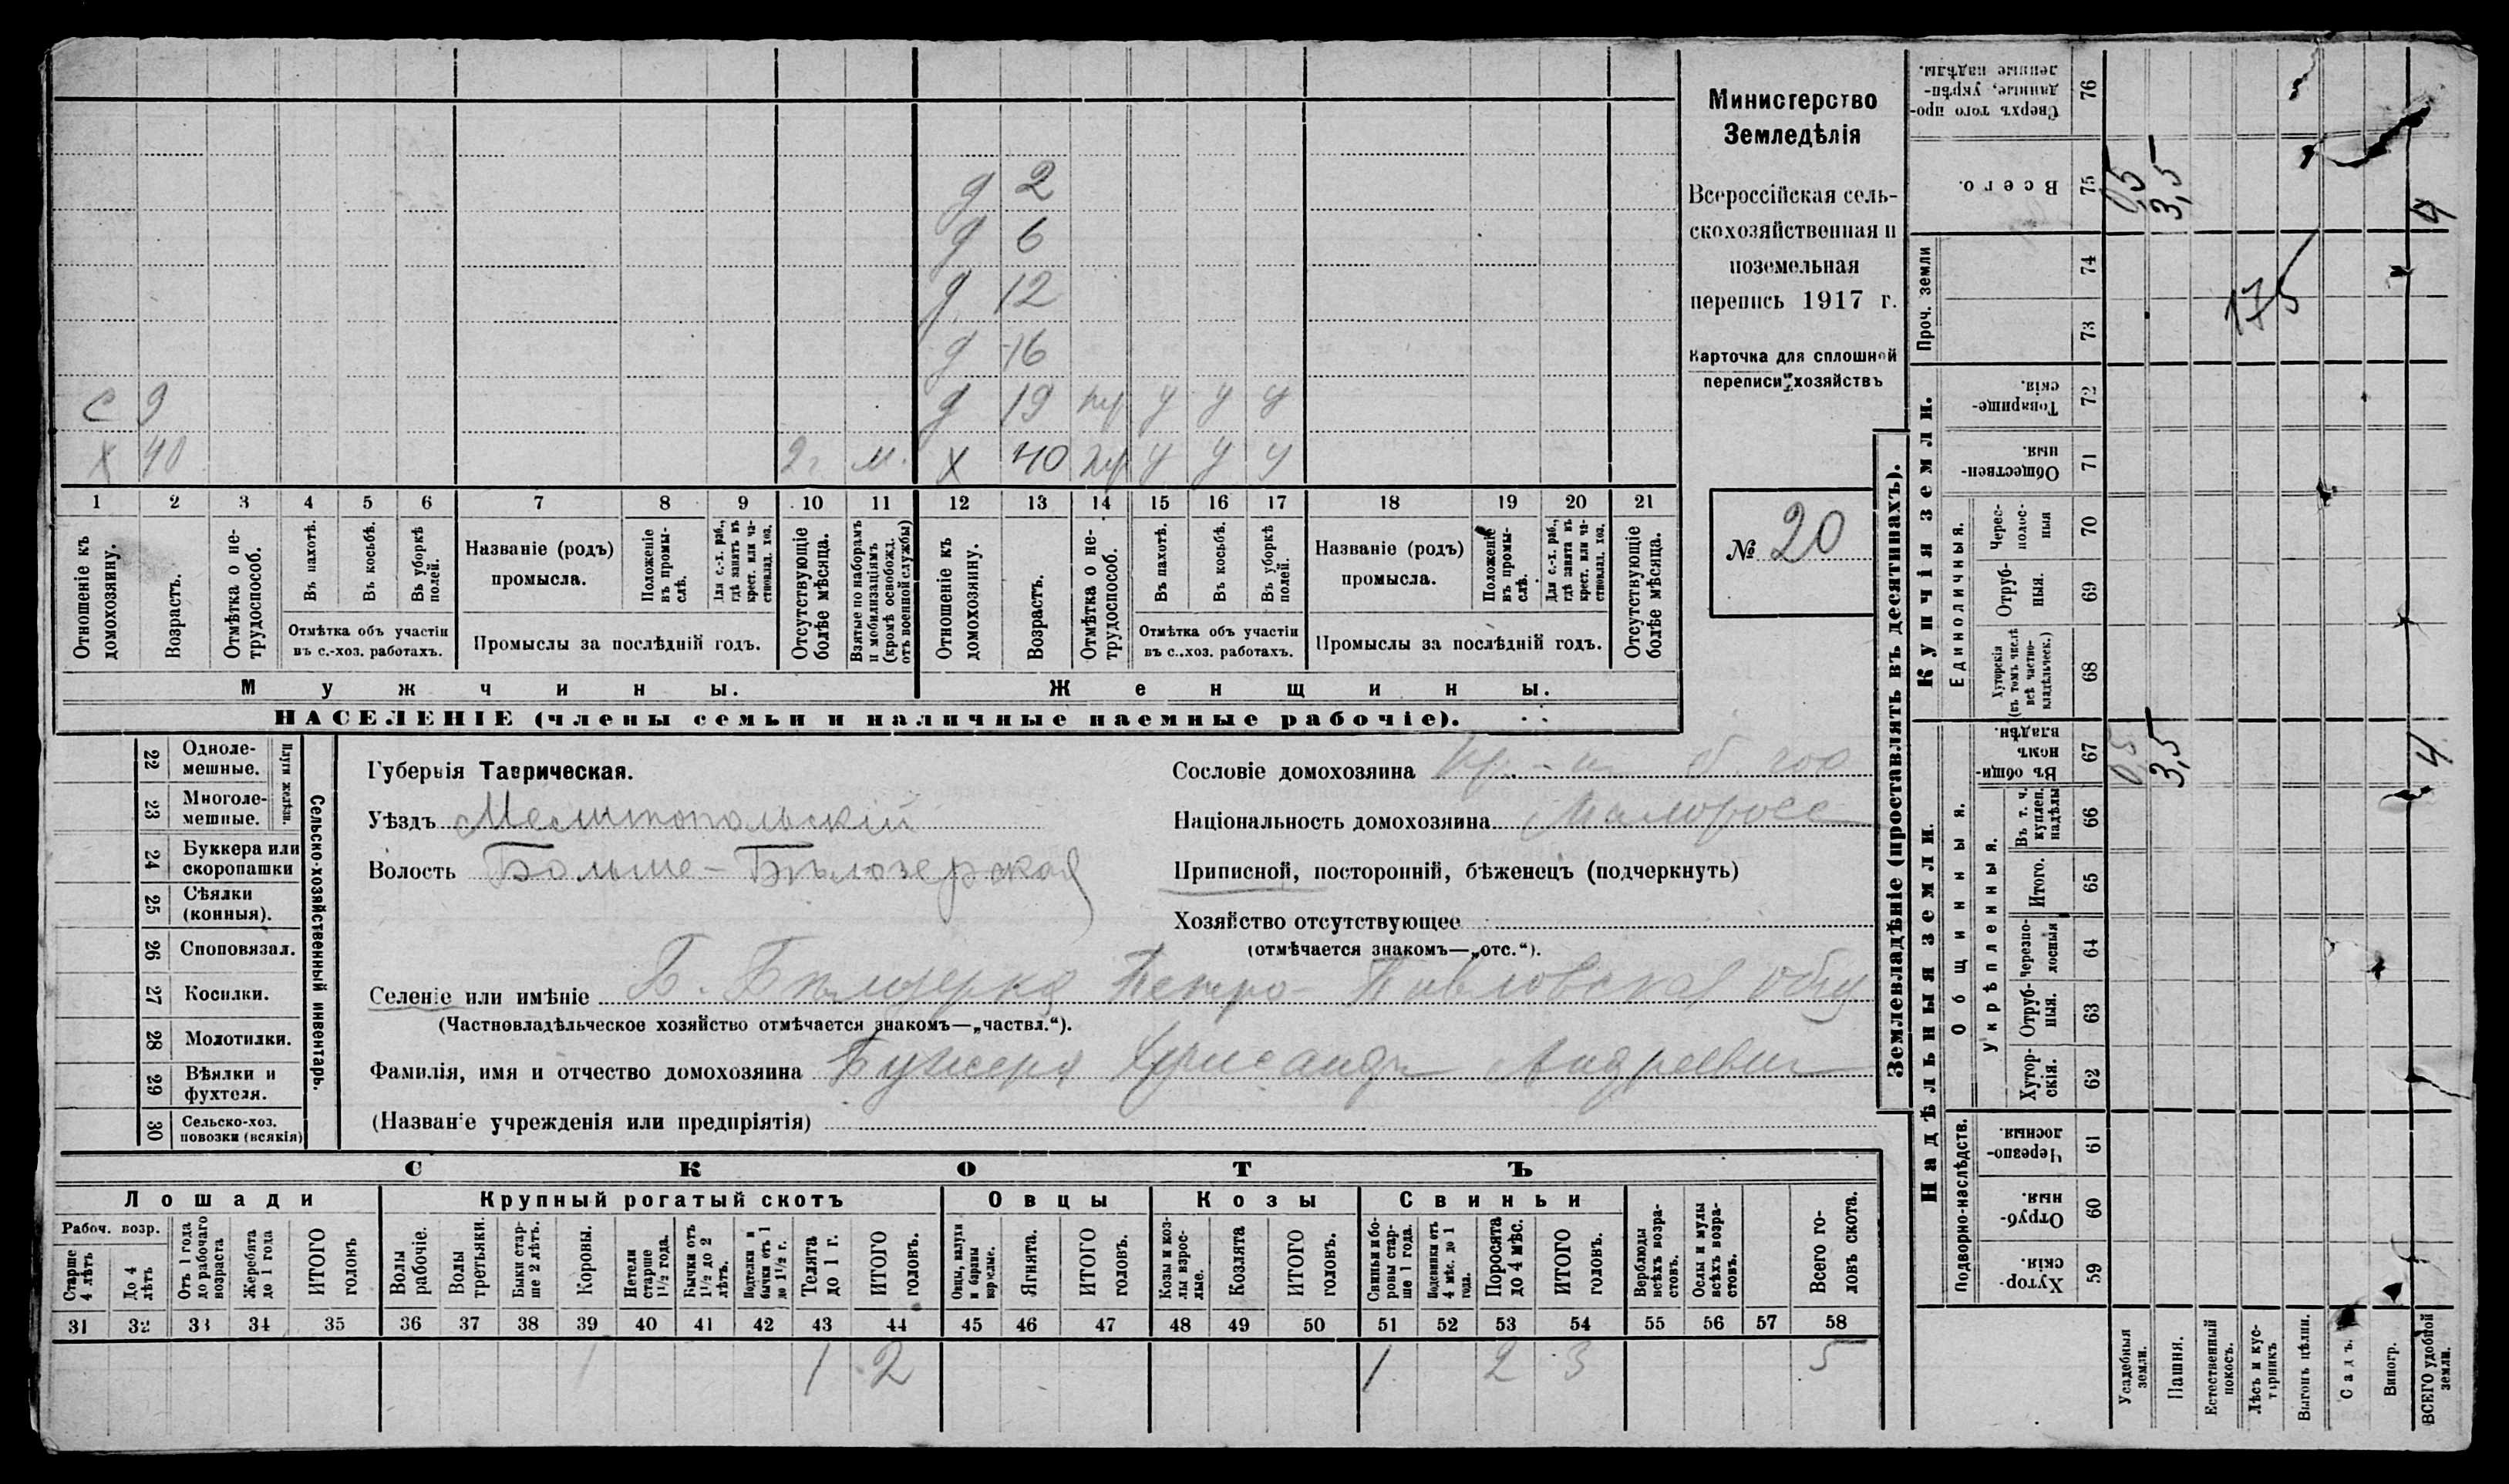 д 2
д 6
д 12
д 16
с 9 д 19 у у у
х 40 2 г. м. х 40 у у у
1 2 3 4 5 6 7 8 9 10 11 12 13 14 15 16 17 18 19 20 21
Отношеніе къ домохозяину.
Возрастъ.
Отмѣтка о не-трудоспособ.
Въ пахотѣ.
Въ косьбѣ.
Въ уборкѣ полей.
Отмѣтка объ участіи
въ с.-хоз. работахъ.
Названіе (родъ)
промысла.
Положеніе въ промы-слѣ.
Для с.-х. раб., гдѣ занятъ въ крест. или ча-стновлад. хоз.
Промыслы за послѣдній годъ.
Отсутствующіе болѣе мѣсяца.
Взятые по наборамъ и мобилизаціямъ (кромѣ освобожд. отъ военной службы)
Отношеніе къ домохозяину.
Возрастъ.
Отмѣтка о не-трудоспособ.
Въ пахотѣ.
Въ косьбѣ.
Въ уборкѣ полей.
Отмѣтка объ участіи
въ с..хоз. работахъ.
Названіе (родъ)
промысла.
Положеніе въ промы-слѣ.
Для с.-х. раб., гдѣ занята въ крест. или ча-стновлад. хоз.
Промыслы за послѣдній годъ.
Отсутствующіе болѣе мѣсяца.
Мужчины.
Женщины.
НАСЕЛЕНІЕ (члены семьи и наличные наемные рабочіе).
Министерство
Земледѣлія
Всероссійская сель-
скохозяйственная и
поземельная
перепись 1917 г.
Карточка для сплошной
переписи хозяйствъ
№ 20
Сельско-хозяйственный инвентарь.
Плуги желѣзн.
22 Одноле-мешные.
23 Многоле-мешные.
24 Буккера или скоропашки
25 Сѣялки (конныя).
26 Споповязал.
27 Косилки.
28 Молотилки.
29 Вѣялки и фухтеля.
30 Сельско-хоз. повозки (всякія)
Губернія Таврическая.
Уѣздъ Мелитопольскій
Волость Больше-Бѣлозерская
Сословіе домохозяина
Національность домохозяина Малоросс
Приписной, посторонній, бѣженецъ (подчеркнуть)
Хозяйство отсутствующее
(отмѣчается знакомъ—„отс.“).
Селеніе или имѣніе Б. Бѣлозерка Петро-Павловская общ
(Частновладѣльческое хозяйство отмѣчается знакомъ—„частвл.“).
Фамилія, имя и отчество домохозяина Андреевич
(Названіе учрежденія или предпріятія)
СКОТЪ
Лошади Крупный рогатый скотъ Овцы Козы Свиньи
Рабоч. возр.
Старше 4 лѣтъ
До 4 лѣтъ
Отъ 1 года до рабочаго возраста
Жеребята до 1 года
ИТОГО головъ
Волы рабочіе.
Волы третьяки.
Быки стар-ше 2 лѣтъ.
Коровы.
Нетели старше 1½ года.
Бычки отъ 1½ до 2 лѣтъ.
Подтелки и бычки отъ 1 до 1½ г.
Телята до 1 г.
ИТОГО головъ.
Овцы, валухи и бараны взрослые.
Ягнята.
ИТОГО головъ.
Козы и коз-лы взрос-лые.
Козлята
ИТОГО головъ.
Свиньи и бо-ровы стар-ше 1 года.
Подсвинки отъ 4 мѣс. до 1 года.
Поросята до 4 мѣс.
ИТОГО головъ.
Верблюды всѣхъ возра-стовъ.
Ослы и мулы всѣхъ возра-стовъ.
Всего го-ловъ скота.
31 32 33 34 35 36 37 38 39 40 41 42 43 44 45 46 47 48 49 50 51 52 53 54 55 56 57 58
1 1 2 1 2 3 5
Землевладѣніе (проставлять въ десятинахъ).
Купчія земли.
Надѣльныя земли.
Сверхъ того про-данные, укрѣп-ленные надѣлы. 76
Всего. 75 0,5 3,5 4
Проч. земли 74 73
175
Товарище-скія. 72
Обществен-ныя. 71
Единоличныя.
Черес-полос-ныя 70
Отруб-ныя. 69
Хуторскія (въ томъ числѣ всѣ частно-владѣльческ.) 68
Общинныя.
Въ общи-номъ владѣн. 67 0,5 3,5 4
Укрѣпленныя.
Въ т. ч. куплен. надѣлы 66
Итого. 65
черезпо-лосныя 64
Отруб-ныя. 63
Хутор-скія. 62
Подворно-наслѣдств.
Черезпо-лосныя. 61
Отруб-ныя. 60
Хутор-скія. 59
Усадебныя земли.
Пашня.
Естественный покосъ.
Лѣсъ и кус-тарникъ
Выгонъ цѣлин.
Садъ.
Виногр.
ВСЕГО удобной земли.